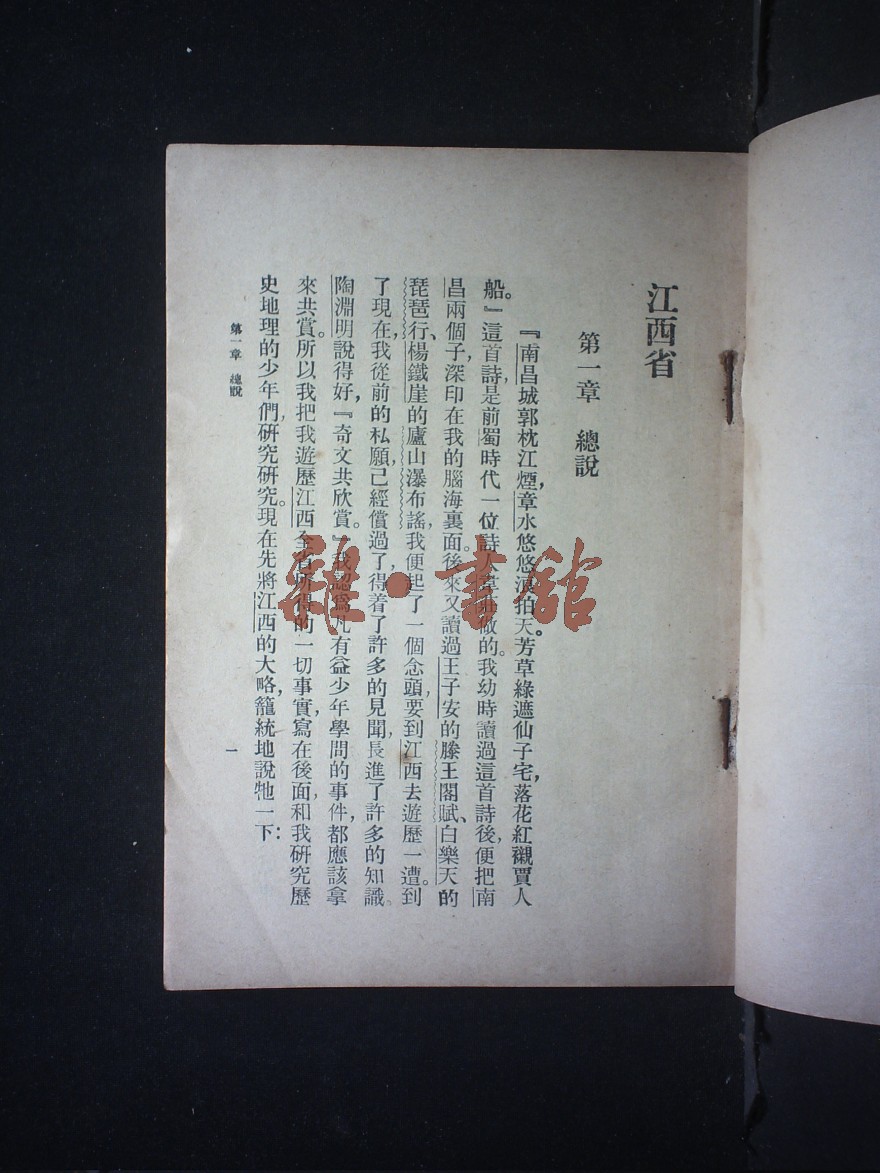 江西省
第一章　總說
『南昌城郭枕江煙，章水悠悠浪拍天。芳草綠遮仙子宅，落花紅襯賈人
船。』這首詩是前蜀時代一位詩人韋莊做的。我幼時讀過這首詩後，便把南
昌兩個子，深印在我的腦海裏面。後來又讀過王子安的滕王閣賦、白樂天的
琵琶行、楊鐵崖的廬山瀑布謠，我便起了一個念頭，要到江西去遊歷一遭。到
了現在，我從前的私願，已經償過了，得着了許多的見聞，長進了許多的知識。
陶淵明說得好，『奇文共欣賞。』我認爲凡有益少年學問的事件，都應該拿
來共賞。所以我把我遊歷江西全省所得的一切事實，寫在後面，和我研究歷
史地理的少年們，研究研究。現在先將江西的大略，籠統地說牠一下：
第一章　總說
一
雜·書館